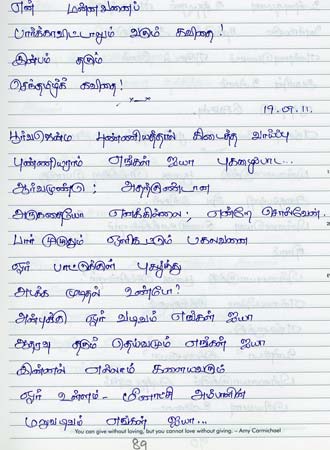 என் மன்னவனைப்
பார்க்காவிட்டாலும் வரும் கவிதை!
இன்பம் தரும்
செந்தமிழ்க் கவிதை!
19.07.11.
பூர்வஜென்ம புண்ணியத்தால் கிடைத்த வாய்ப்பு
புண்ணியராம் எங்கள் ஐயா புகழைபாட...
ஆர்வமுண்டு; அதற்குண்டான
அருகதையோ எனக்கில்லை; என்றே சொல்வேன்.
பார் முழுதும் ஒளிதரும் பகலவனை
ஓர் பாட்டுக்குள் புகழ்ந்து
அடக்க முடிதல் உண்டோ?
அன்புக்கு ஓர் வடிவம் எங்கள் ஐயா
ஆதரவு தரும் தெய்வமும் எங்கள் ஐயா
இன்னல் எல்லாம் களையவரும்
ஓர் உன்னம் - மீனாட்சி அம்பாளின்
மறுவடிவம் எங்கள் ஐயா...
You can give without loving, but you cannot love without giving. – Amy Carmichael
89